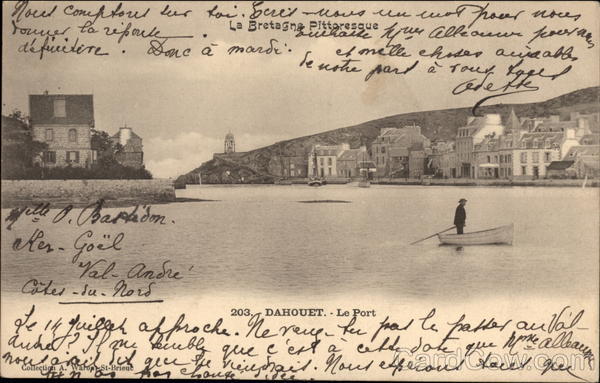 Nous comptons sur toi. Écris-nous un mot pour nous
donner la réponse
définitive. Donc à mardi.
La Bretagne Pittoresque
embrasse Mme Alleaume pour nous
et mille choses aimables
de notre part à vous tous
Odette
Mlle P. Bastédon
Ker-Goël
Val-André
Côtes-du-Nord
203. DAHOUET. - Le Port
Le 14 juillet approche. Ne veux-tu pas le passer au Val-
André? Il me semble que c'est à cette date que Mme Alleaume
nous avait dit que tu viendrais. Nous espérons tous que
tu n'as pas changé d'idée
Collection A. Waron, St-Brieuc
CardCow.com